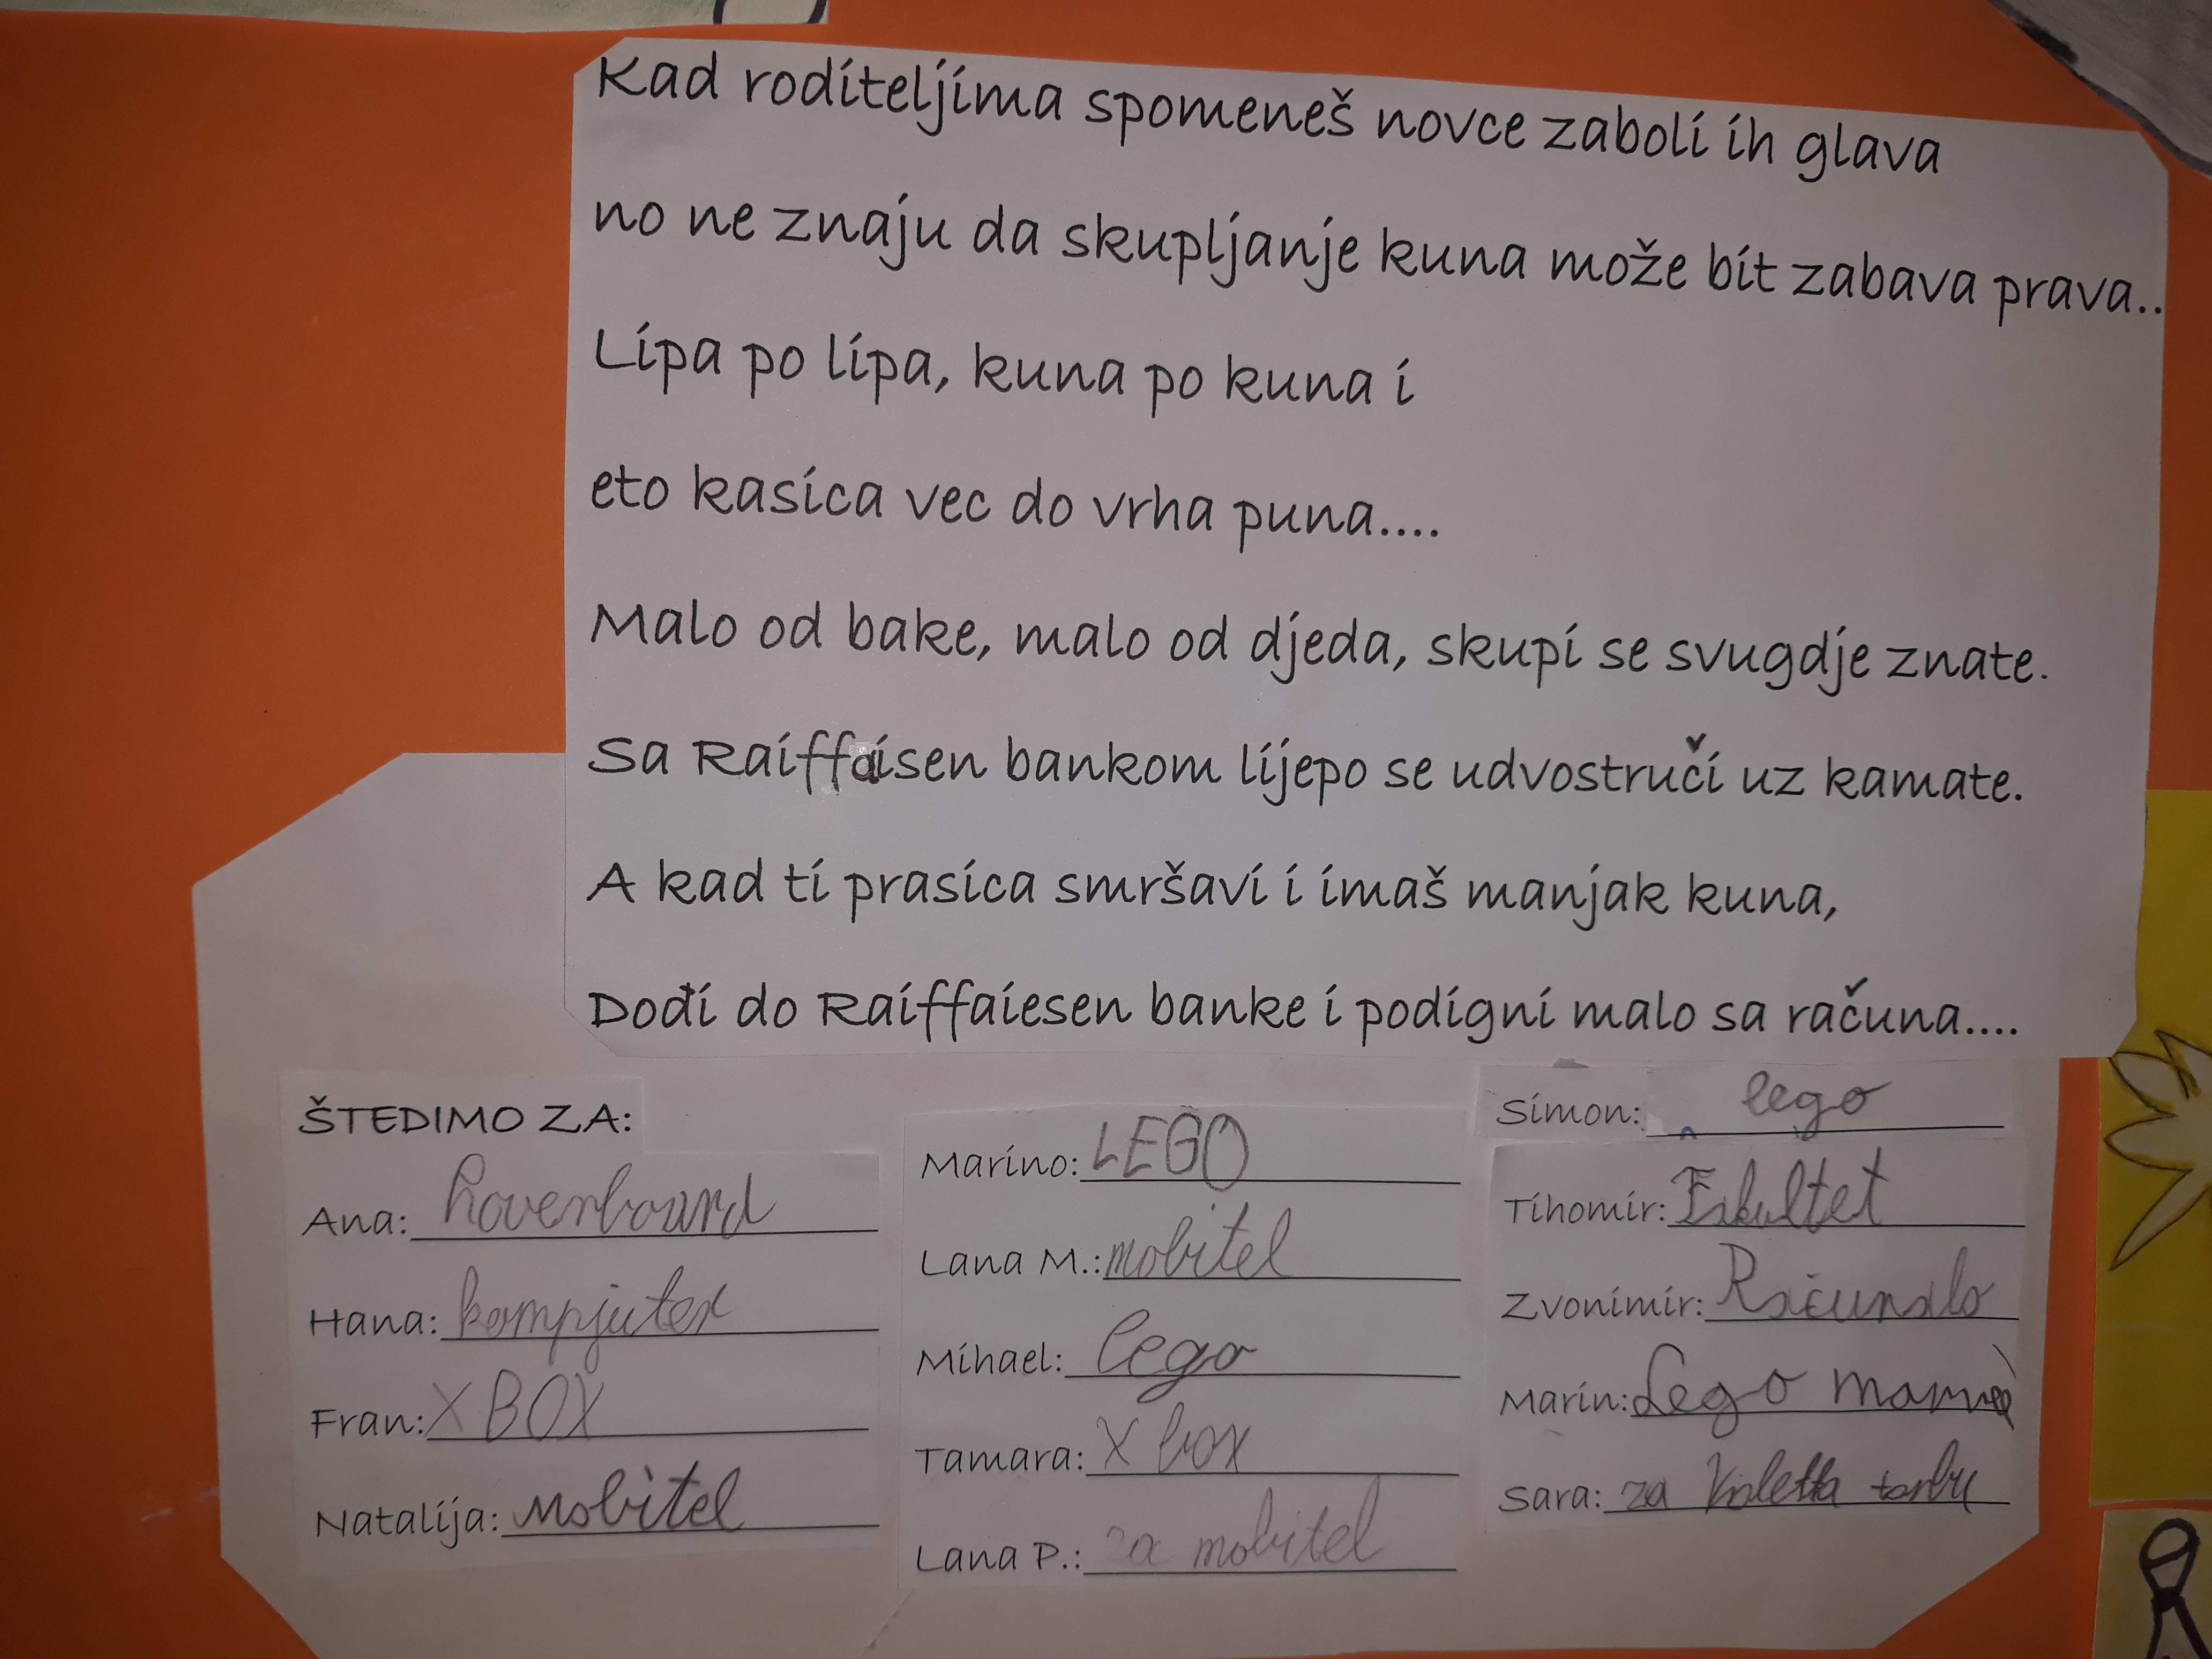 Kad roditeljima spomeneš novce zaboli ih glava
no ne znaju da skupljanje kuna može bit zabava prava..
Lipa po lipa, kuna po kuna i
eto kasica vec do vrha puna....
Malo od bake, malo od djeda, skupi se svugdje znate.
Sa Raiffaisen bankom lijepo se udvostruči uz kamate.
A kad ti prasica smršavi i imaš manjak kuna,
Dođi do Raiffaiesen banke i podigni malo sa računa....
ŠTEDIMO ZA:
Ana: hoverboard
Hana: kompjuter
Fran: XBOX
Natalija: Mobitel
Marino: LEGO
Lana M.: mobitel
Mihael: lego
Tamara: X box
Lana P.: za mobitel
Simon: lego
Tihomir: Fakultet
Zvonimir: Računalo
Marin: Lego
Sara: za Violetta torbu